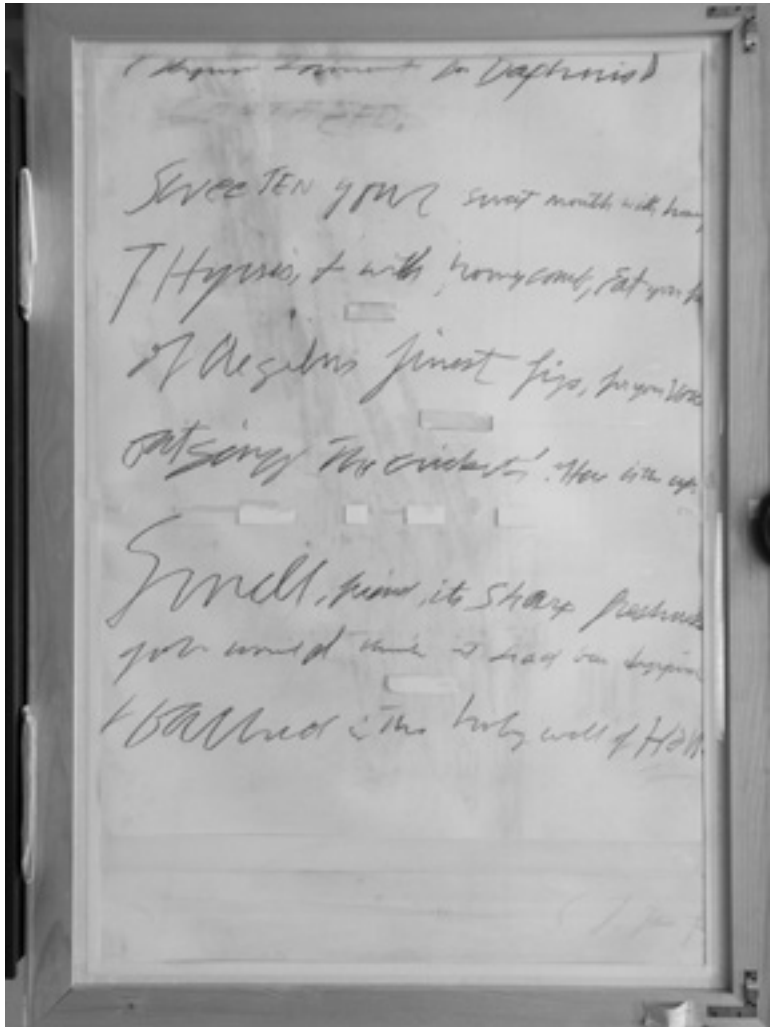 for Daphnis)
SweeTEN your sweet mouth with honey
THyrsis, + with honeycomb, Eat your
of Aegilus finest figs, for you
outsing The crickets! Here is the cup.
Smell, friend, its Sharp freshness
you would think it had been dipping
+ BaThed in The holy well of